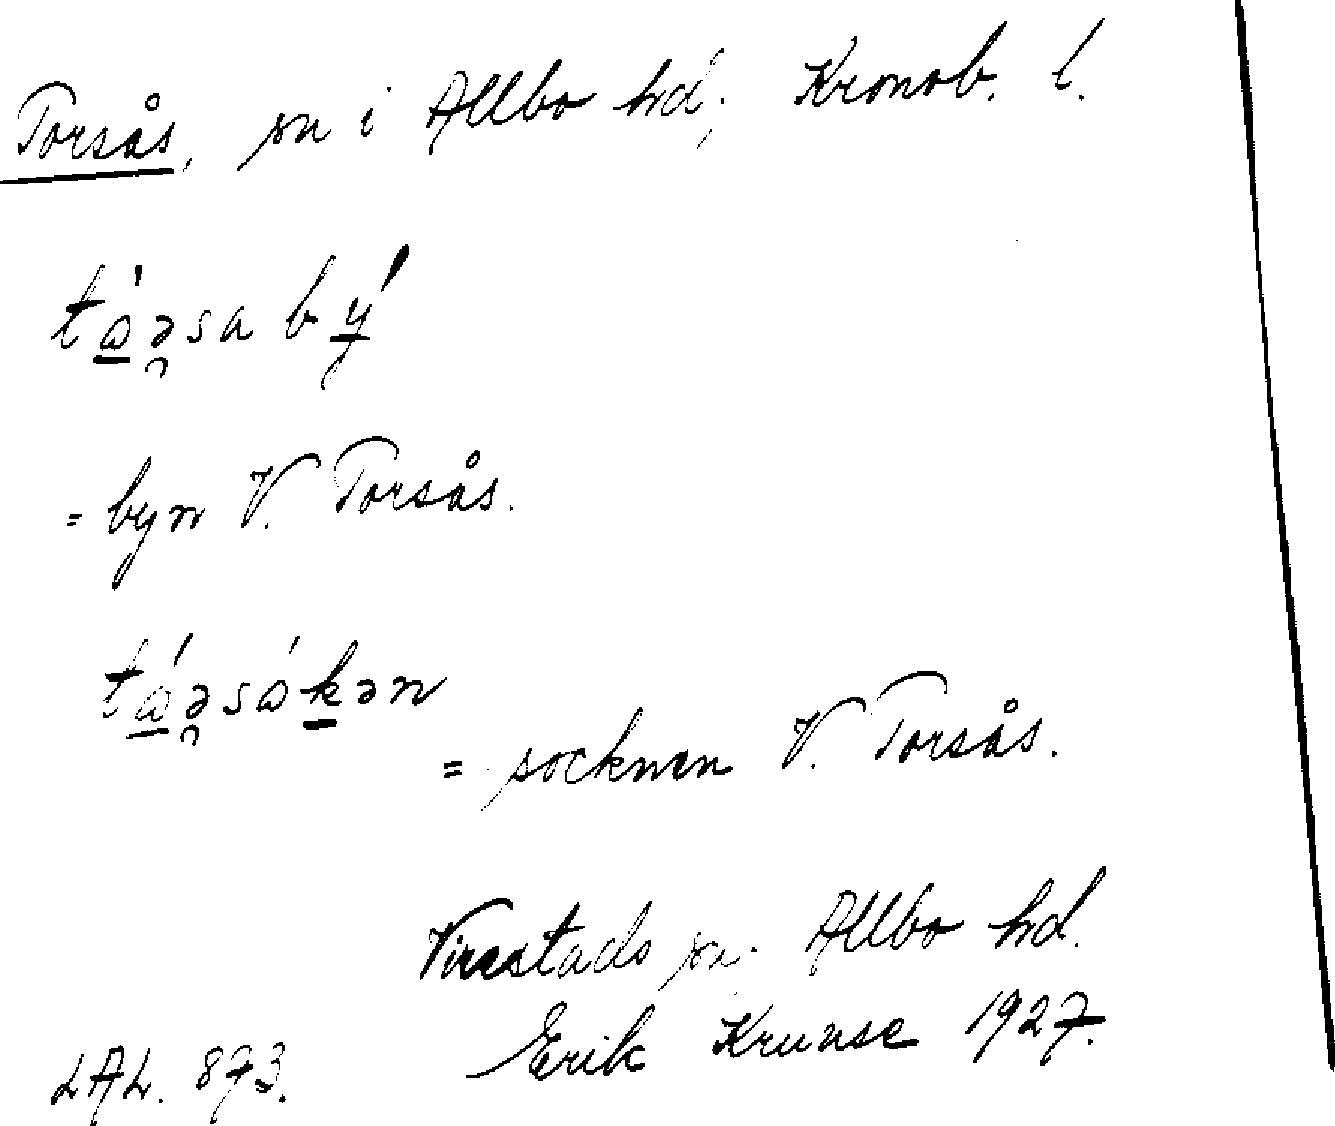 Torsås, sn i Allbo hd, Kronob. l.
tɷ́ə̯sa bý
= byn V. Torsås.
tɷ́ə̯sɷ́kən
= socknen V. Torsås.
Virestads sn. Allbo hd.
Erik Krunse 1927.
LAL. 873.